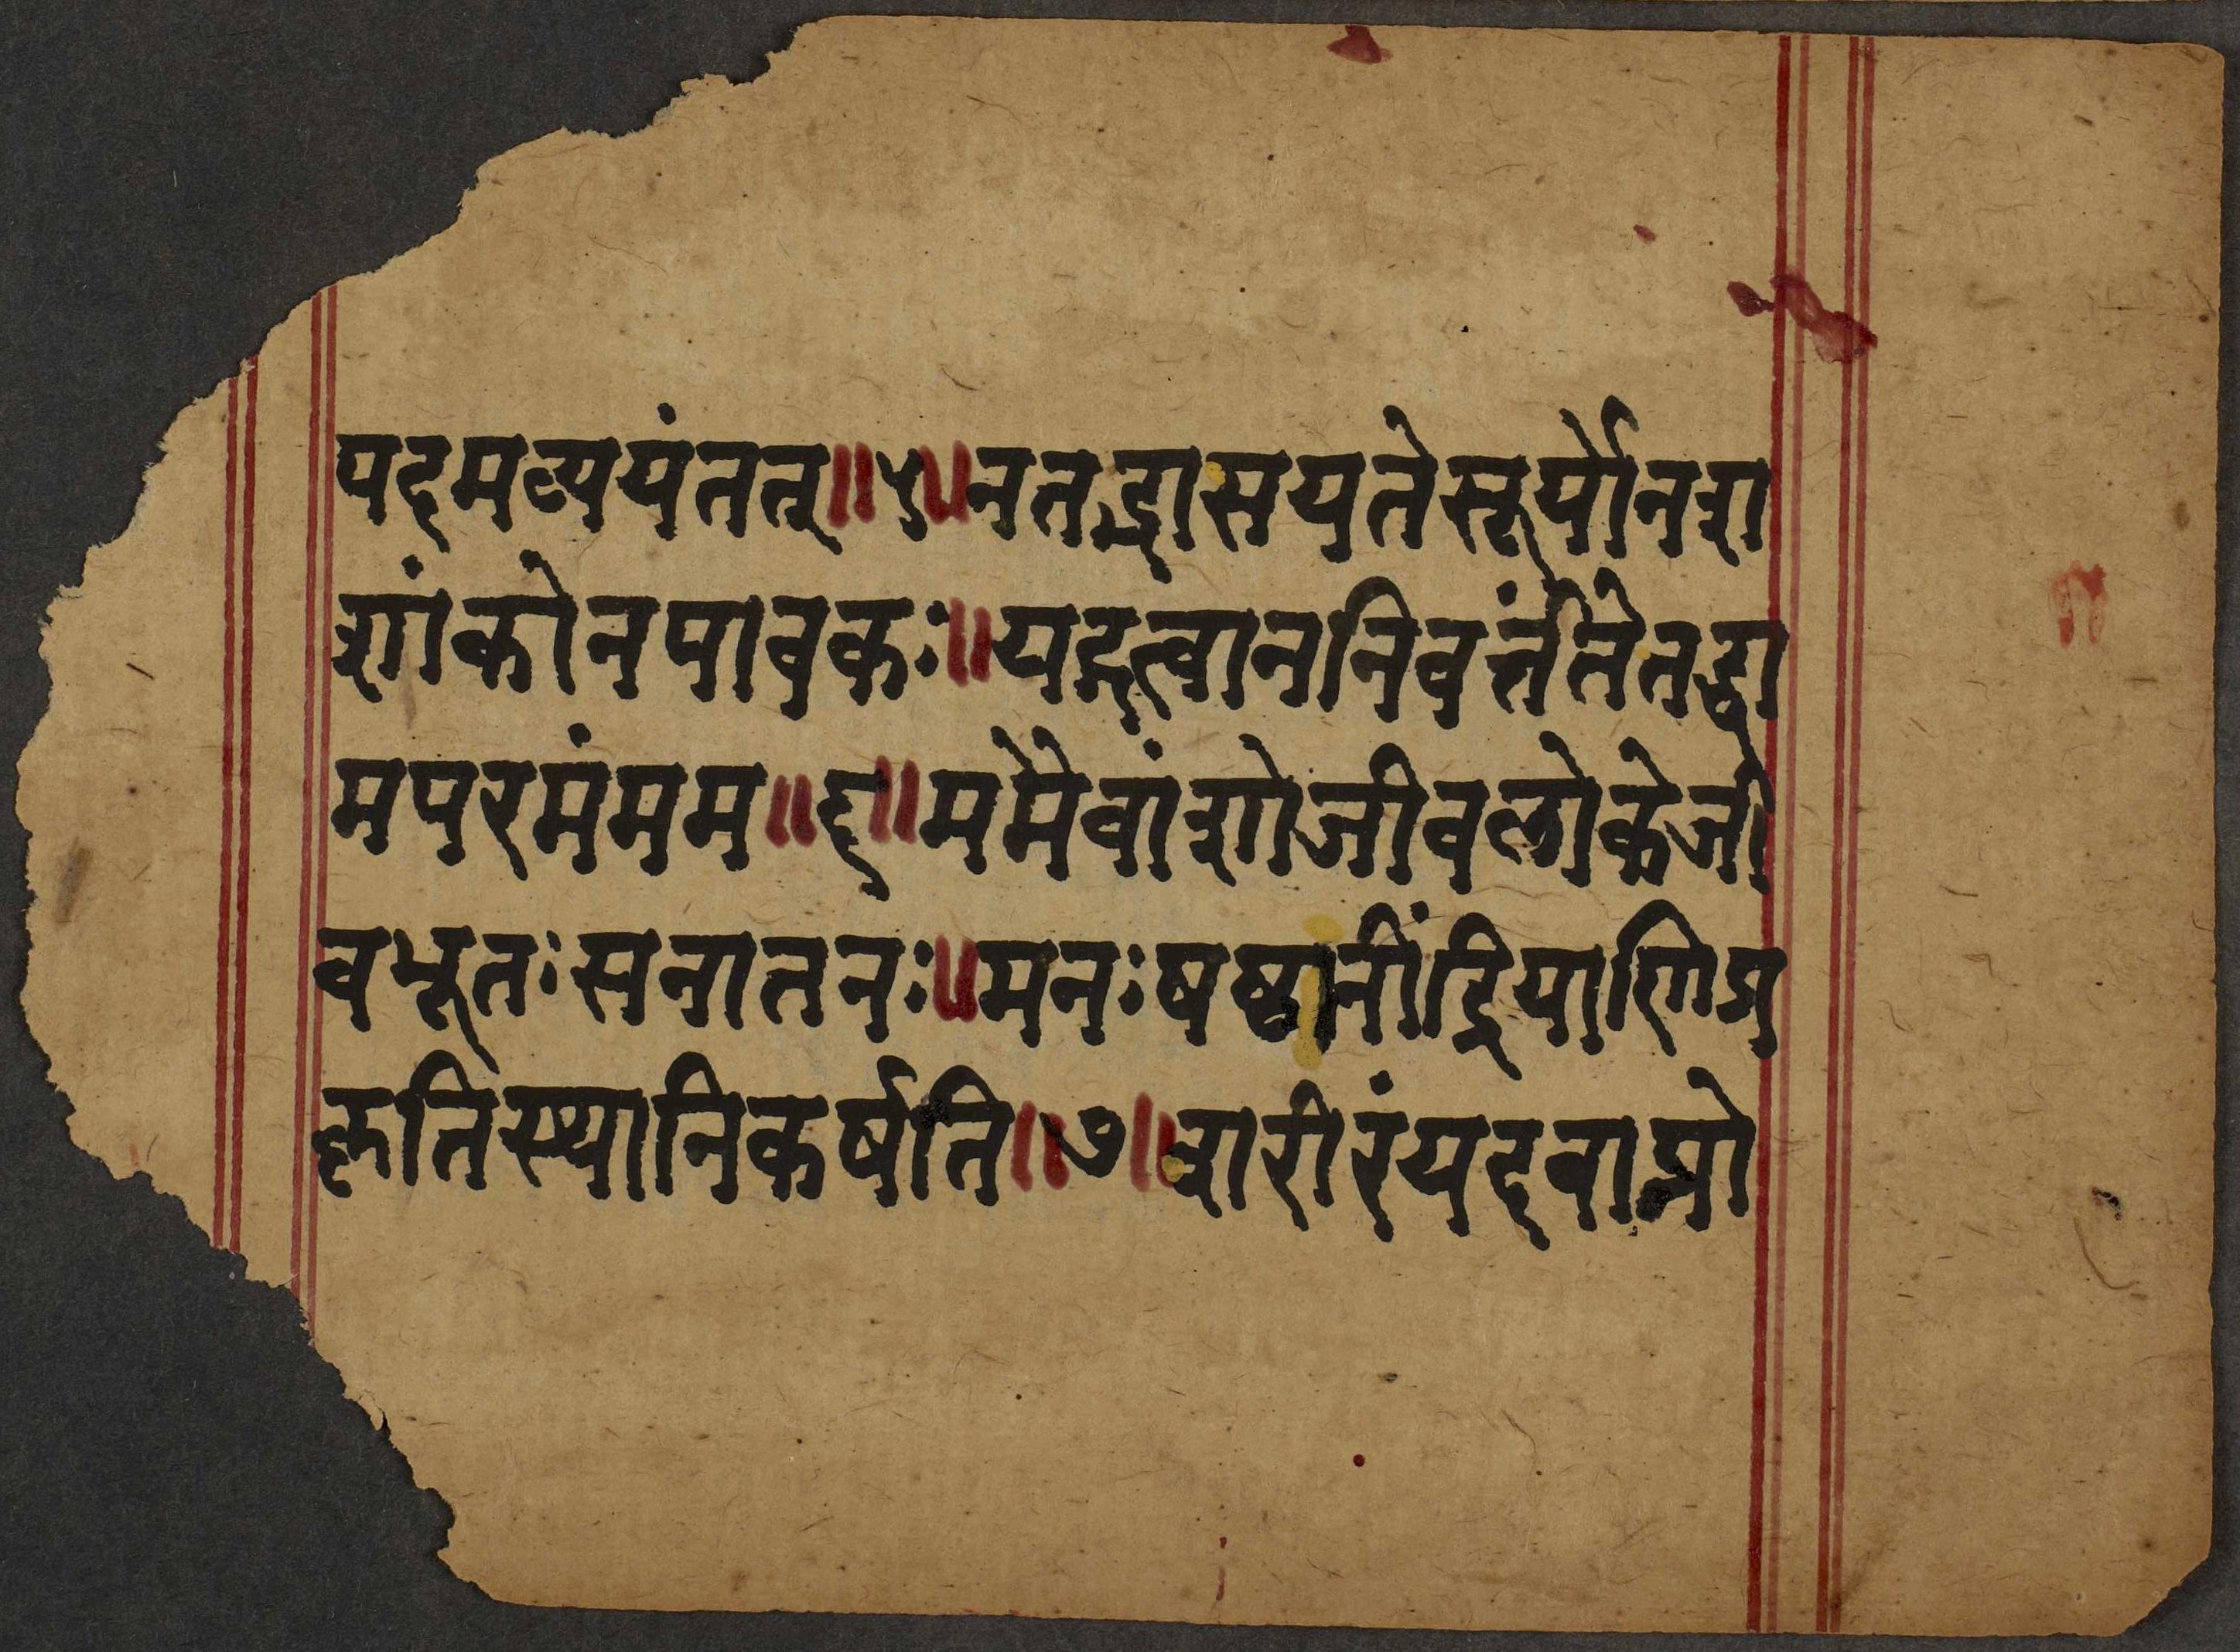 पदमव्ययंतत्॥५॥नतद्भासयतेसूर्योनशा
शांकोनपावकः॥यद्गत्वाननिवर्त्तंतेतद्धा
मपरमंमम॥६॥ममैवांशोजीवलोकेजी
वभूतःसनातनः॥मनःषष्ठानींद्रियाणिप्र
कृतिस्थानिकर्षति॥७॥शरीरंयदवाप्नो